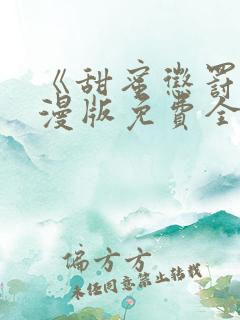 《甜蜜懲罰
漫版免費全
偏方方
未经同意禁止转载